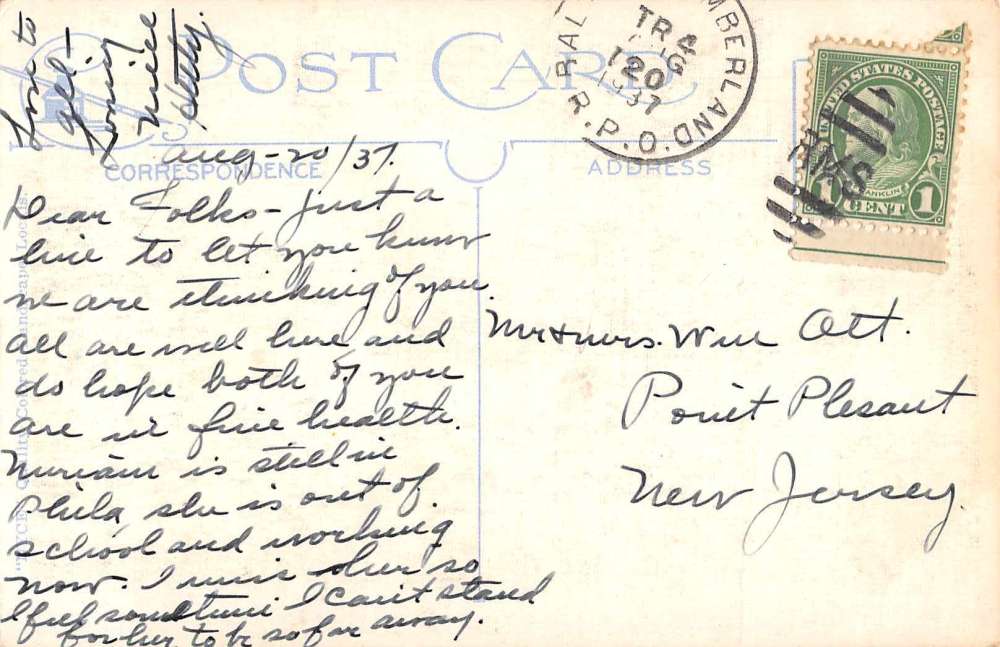 Love to
all -
Loving
niece
Hetty.
POST CARD
BALT
MBERLAND.
R.P.O.
TR 4
AUG
20
1937
RMS
UNITED STATES POSTAGE
FRANKLIN
1 CENT 1
CORRESPONDENCE
ADDRESS
Aug-20/37.
Dear Folks - Just a
line to let you know
we are thinking of you.
all are well here and
do hope both of you
are in fine health.
Miriam is still in
Phila, she is out of
school and working
now. I miss her so
I feel sometime I can't stand
for her to be so far away.
Mr & Mrs. Wm Ott.
Point Plesant
New Jersey.
Quality Colored Landscape Locals.